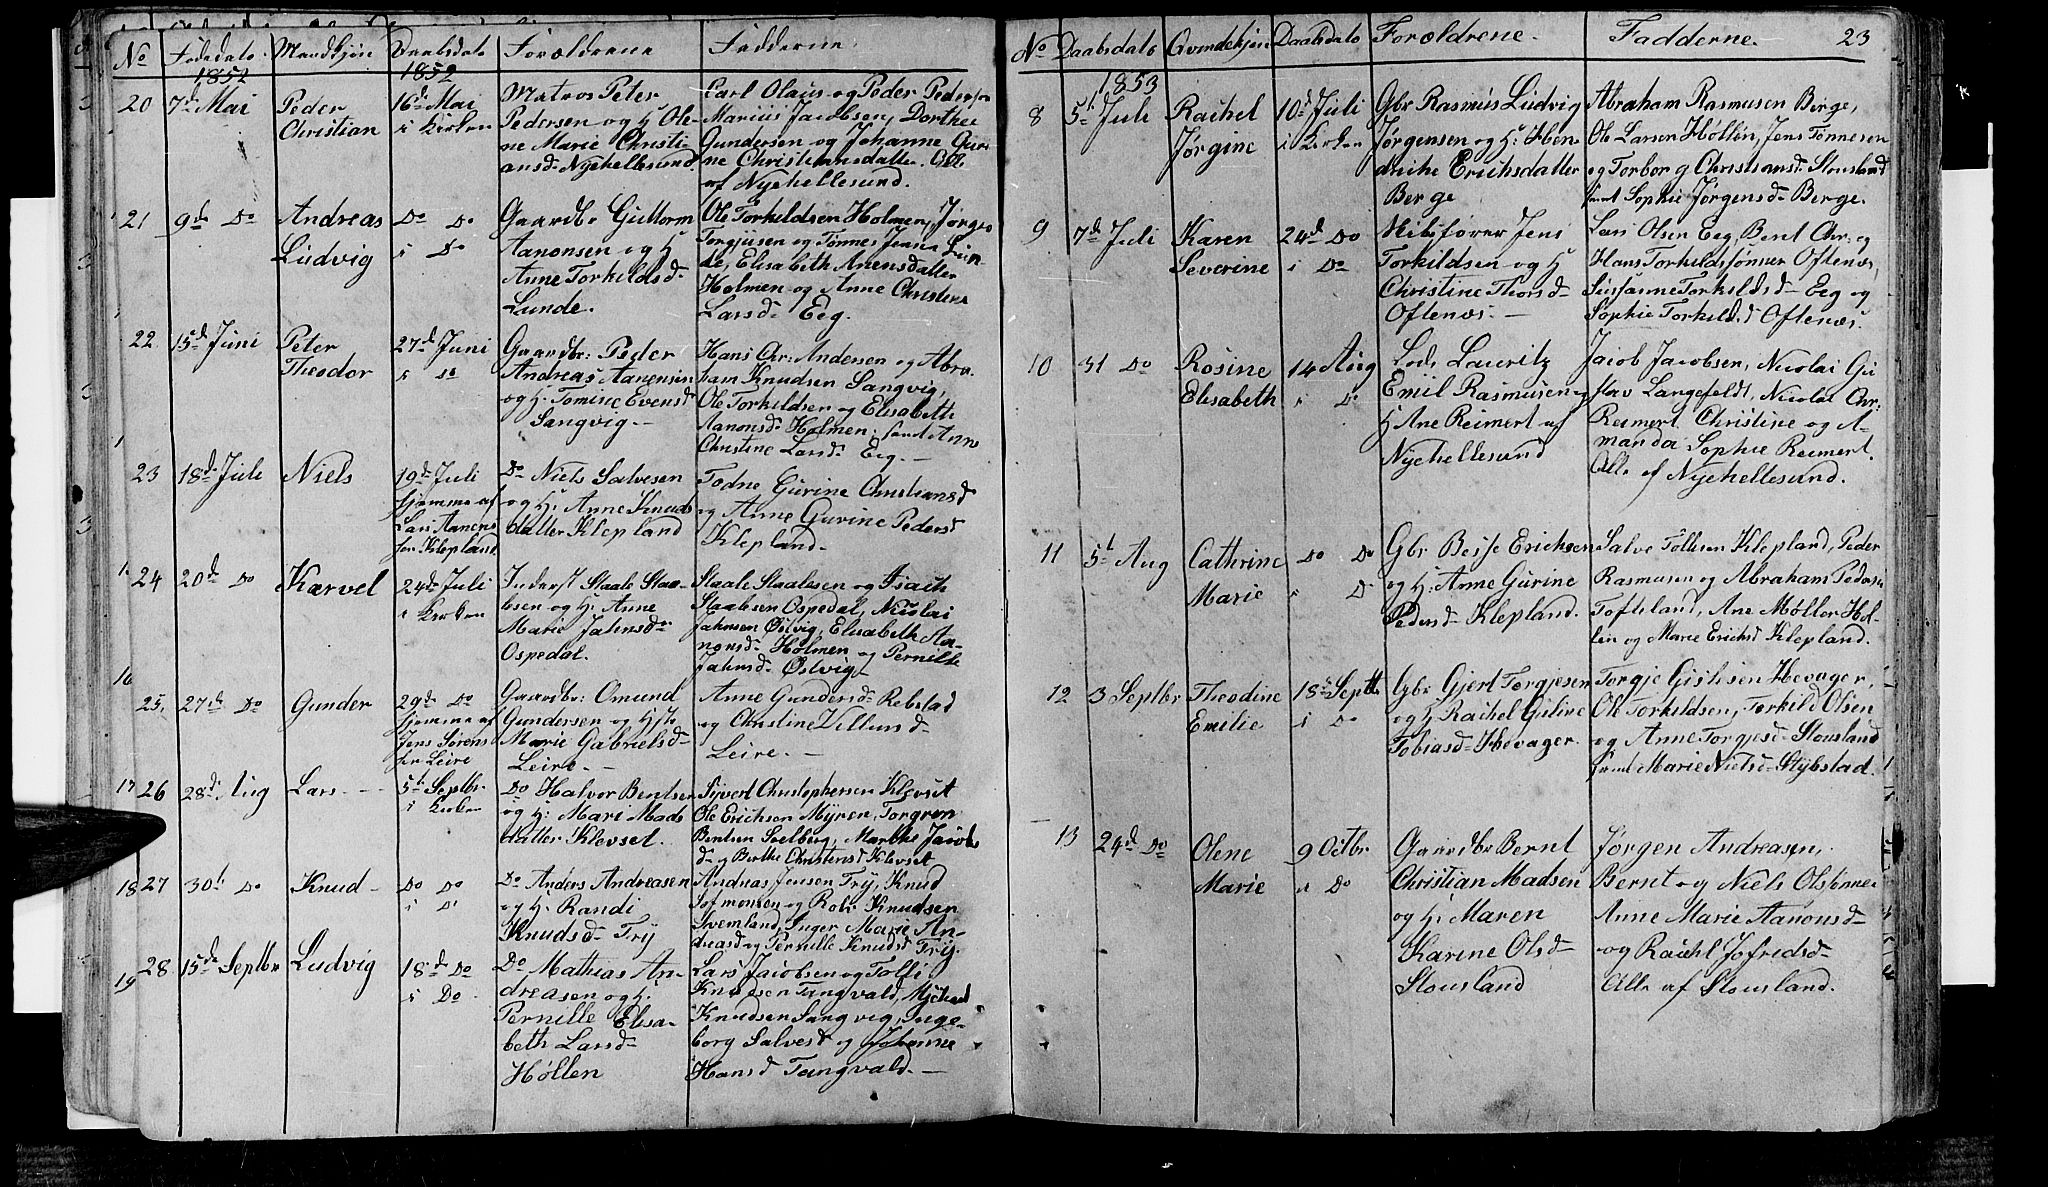 No Fødedato Mandkjøn Daabsdato Forældrene Fadderne
1852 1852
20 7d Mai Peder Christian 16d Mai i Kirken
Matros Peter
Pedersen og H Ole-
ne Marie Christi-
ansd Nyehellesund.
Carl Olaus og Peder Peders
Marius Jacobsen, Dorthea
Gundersen og Johanne Guri-
ne Christiansdatter. Alle
af Nyehellesund.
21 9de Do Andreas Ludvig Do Do i Do
Gaardbr Guttorm
Aanonsen og H
Anne Torkildsd
Lunde.
Ole Torkildsen Holmen, Jørgen
Torgjusen og Tønnes Jensen Lun-
de, Elisabeth Anensdatter
Holmen og Anne Christine
Larsd Eeg.
22 15d Juni Peter Theodor 27d Juni i do
Gaardbr: Peder
Andreas Aanensen
og H. Tomine Evensd
Sangvig.
Hans Chr: Andersen og Abra-
ham Knudsen Sangvig,
Ole Torkildsen og Elisabeth
Aanonsd Holmen, samt Anne
Christine Larsd Eeg.
23 18de Juli Niels 19d Juli
hjemme af
Lars Aanens
sen Klepland.
Do Niels Salvesen
og H. Anne Knuds
datter Klepland
Todne Gurine Christiansd
og Anne Gurine Pedersd
Klepland
24 20d Do Karvel 24de Juli i Kirken
Inderst Staale Staa-
lesen og H. Anne
Marie Jahnsd
Ospedal.
Staale Staalesen og Isach
Staalesen Ospedal, Nicolai
Jahnsen Østvig, Elisabeth Aa-
nonsd Holmen og Pernille
Jahnsd Østvig
25. 27de Do Gunder 29de Do
hjemme af
Jens Sørens
sen Leire
Gaardbr: Omund
Gundersen og Hst
Marie Gabrielsd
Leire.
Anne Gundersd Robstad
og Christine Villumsd
Leire.
26 28d Aug Lars 5te Septbr i Kirken
Do Halvor Bentsen
og H. Mari Mads
datter Klevset.
Syvert Christophersen Klevset
Ole Erichsen Myren, Torgren
Bentsen Stelberg, Marthe Jacobs
d og Berthe Christensd Klevset
27 30te Do Knud Do Do i Do
Do Anders Andreasen
og H. Randi
Knudsd Try
Andreas Jensen Try, Knud
og Rolv Knudsen
Svenland, Inger Marie An-
dreasd og Pernille Knudsd Try.
28. 15de Septbr Ludvig 18de Do i Do
Do Mathias An-
dreasen og H.
Pernille Elisa-
beth Larsd
Høllen
Lars Jacobsen og Tolli
Knudsen Tangvald, Michael
Knudsen Sangvig, Inge-
borg Salvesd og Johanne
Hansd Tangvald.
No Daabsdato Qvindekjøn Daabsdato Forældrene. Fadderne. 23
1853
8 5te Juli Rachel Jørgine 10d Juli i Kirken
Gbr Rasmus Ludvig
Jørgensen og H: Hen-
driche Erichsdatter
Berge
Abraham Rasmusen Berge,
Ole Larsen Høllen, Jens Tønnesen
og Torborg Christiansd Stousland
samt Sophie Jørgensd Berge.
9 7de Juli Karen Severine 24d Do i Do
Jens
Torkildsen og H
Christine Thorsd
Oftenæs.
Lars Olsen Eeg, Bent Chr: og
Hans Torkildsønner Oftenæs,
Susanne Torkildsd Eeg og
Sophie Torkildsd Oftenæs.
10 31 Do Rosine Elisabeth 14 Aug i Do
Lods Lauritz
Emil Rasmusen og
H Ane Reimert af
Nyehellesund
Jacob Jacobsen, Nicolai Gu
stav Langefeldt, Nicolai Chr:
Reimert, Christine og A-
manda Sophie Reimert.
Alle af Nyehellesund.
11 5te Aug Cathrine Marie Do Do i Do
Gbr Besse Erichsen
og H. Anne Gurine
Pedersd Klepland.
Salve Tollisen Klepland, Peder
Rasmusen og Abraham Pedersen
Tofteland, Ane Møller Høl-
len og Marie Erichsd Klepland.
12 3 Septbr Theodine Emilie 18de Septbr i Do
Gbr Gjert Torgjesen
og H Rachel Gisline
Tobiasd Hevager.
Torgje Gislesen Hevager,
Ole Torkildsen, Torkild Olsen
og Anne Torgjesd Stousland
samt Marie Nielsd Stybstad.
13 24d Do Olene Marie 9 Octbr i Do
Gaardbr Bernt
Christian Madsen
og H. Maren
Karine Olsd
Stousland
Jørgen Andreasen,
Bernt og Niels Olsønner
Anne Marie Aanonsd
og Rachel Jofridsd
Alle af Stousland.